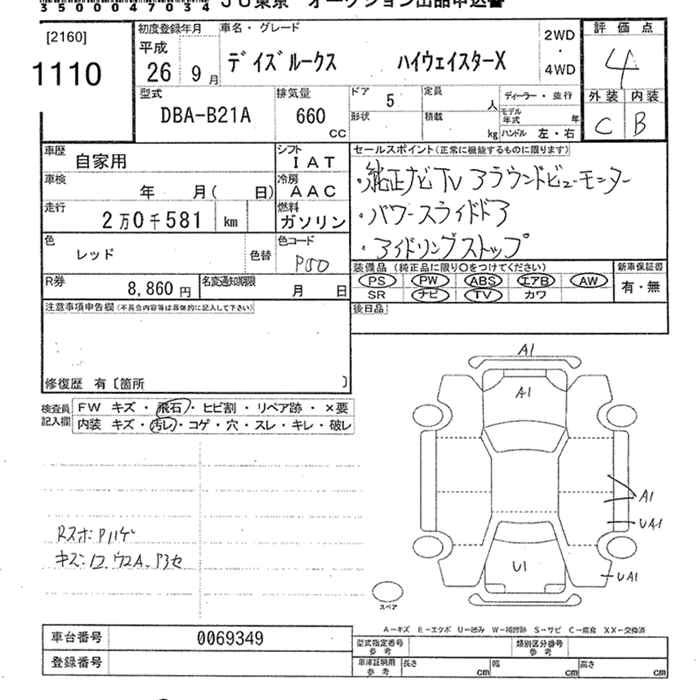 350000047034 JU東京 オークション出品申込書
[2160]
1110
初度登録年月
平成
26 9月
車名・グレード
デイズルークス ハイウェイスターX
2WD
・
4WD
評価点
4
外装 内装
C B
型式
DBA-B21A
排気量
660
cc
ドア 5
形状
定員 人
積載 kg
ディーラー・並行
モデル年式 年
ハンドル 左・右
車歴
自家用
シフト
IAT
車検
年 月( 日)
冷房
AAC
走行
2万0千581 km
燃料
ガソリン
色
レッド
色替
色コード
R券
8,860円
名変通知期限
月 日
セールスポイント(正常に機能するものに限ります)
・純正ナビTVアラウンドビューモニター
・パワースライドドア
・アイドリングストップ
装備品(純正品に限り○をつけてください)
PS PW ABS エアB AW
SR ナビ TV カワ
新車保証書
有・無
後日品
注意事項申告欄(不具合内容等は具体的に記入して下さい)
修復歴 有〔箇所 〕
検査員
記入欄
FW キズ・飛石・ヒビ割・リペア跡・×要
内装 キズ・汚レ・コゲ・穴・スレ・キレ・破レ
A1
A1
A1
UA1
UA1
U1
スペア
A-キズ E-エクボ U-凹み W-補修跡 S-サビ C-腐食 XX-交換済
車台番号 0069349
登録番号
型式指定番号
参考
類別区分番号
参考
車庫証明用
参考
長さ cm
幅 cm
高さ cm